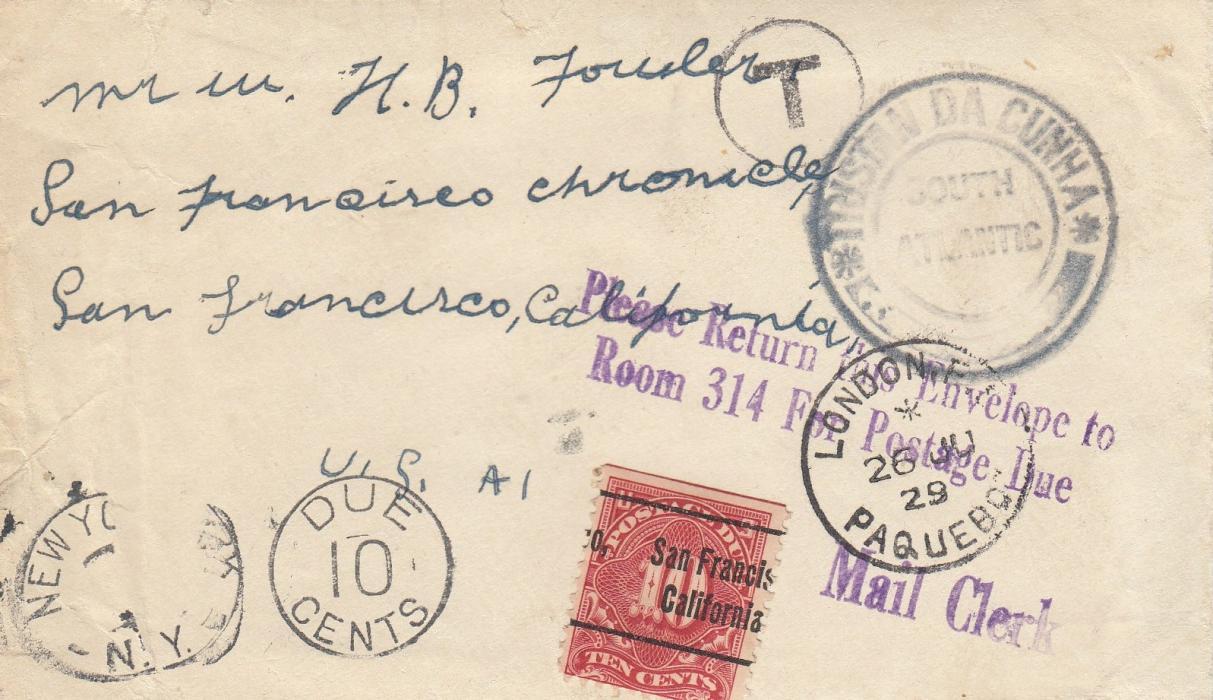 mr w. H.B. Fowler,
T
San Francisco chronicle,
San Francisco, California,
U.S. A1
* TRISTAN DA CUNHA *
SOUTH
ATLANTIC
Please Return this Envelope to
Room 314 For Postage Due
Mail Clerk
LONDON
26 JU
29
PAQUEBOT
NEW YO
N.Y.
DUE
10
CENTS
POSTAGE DUE
San Francis
California
10
TEN CENTS